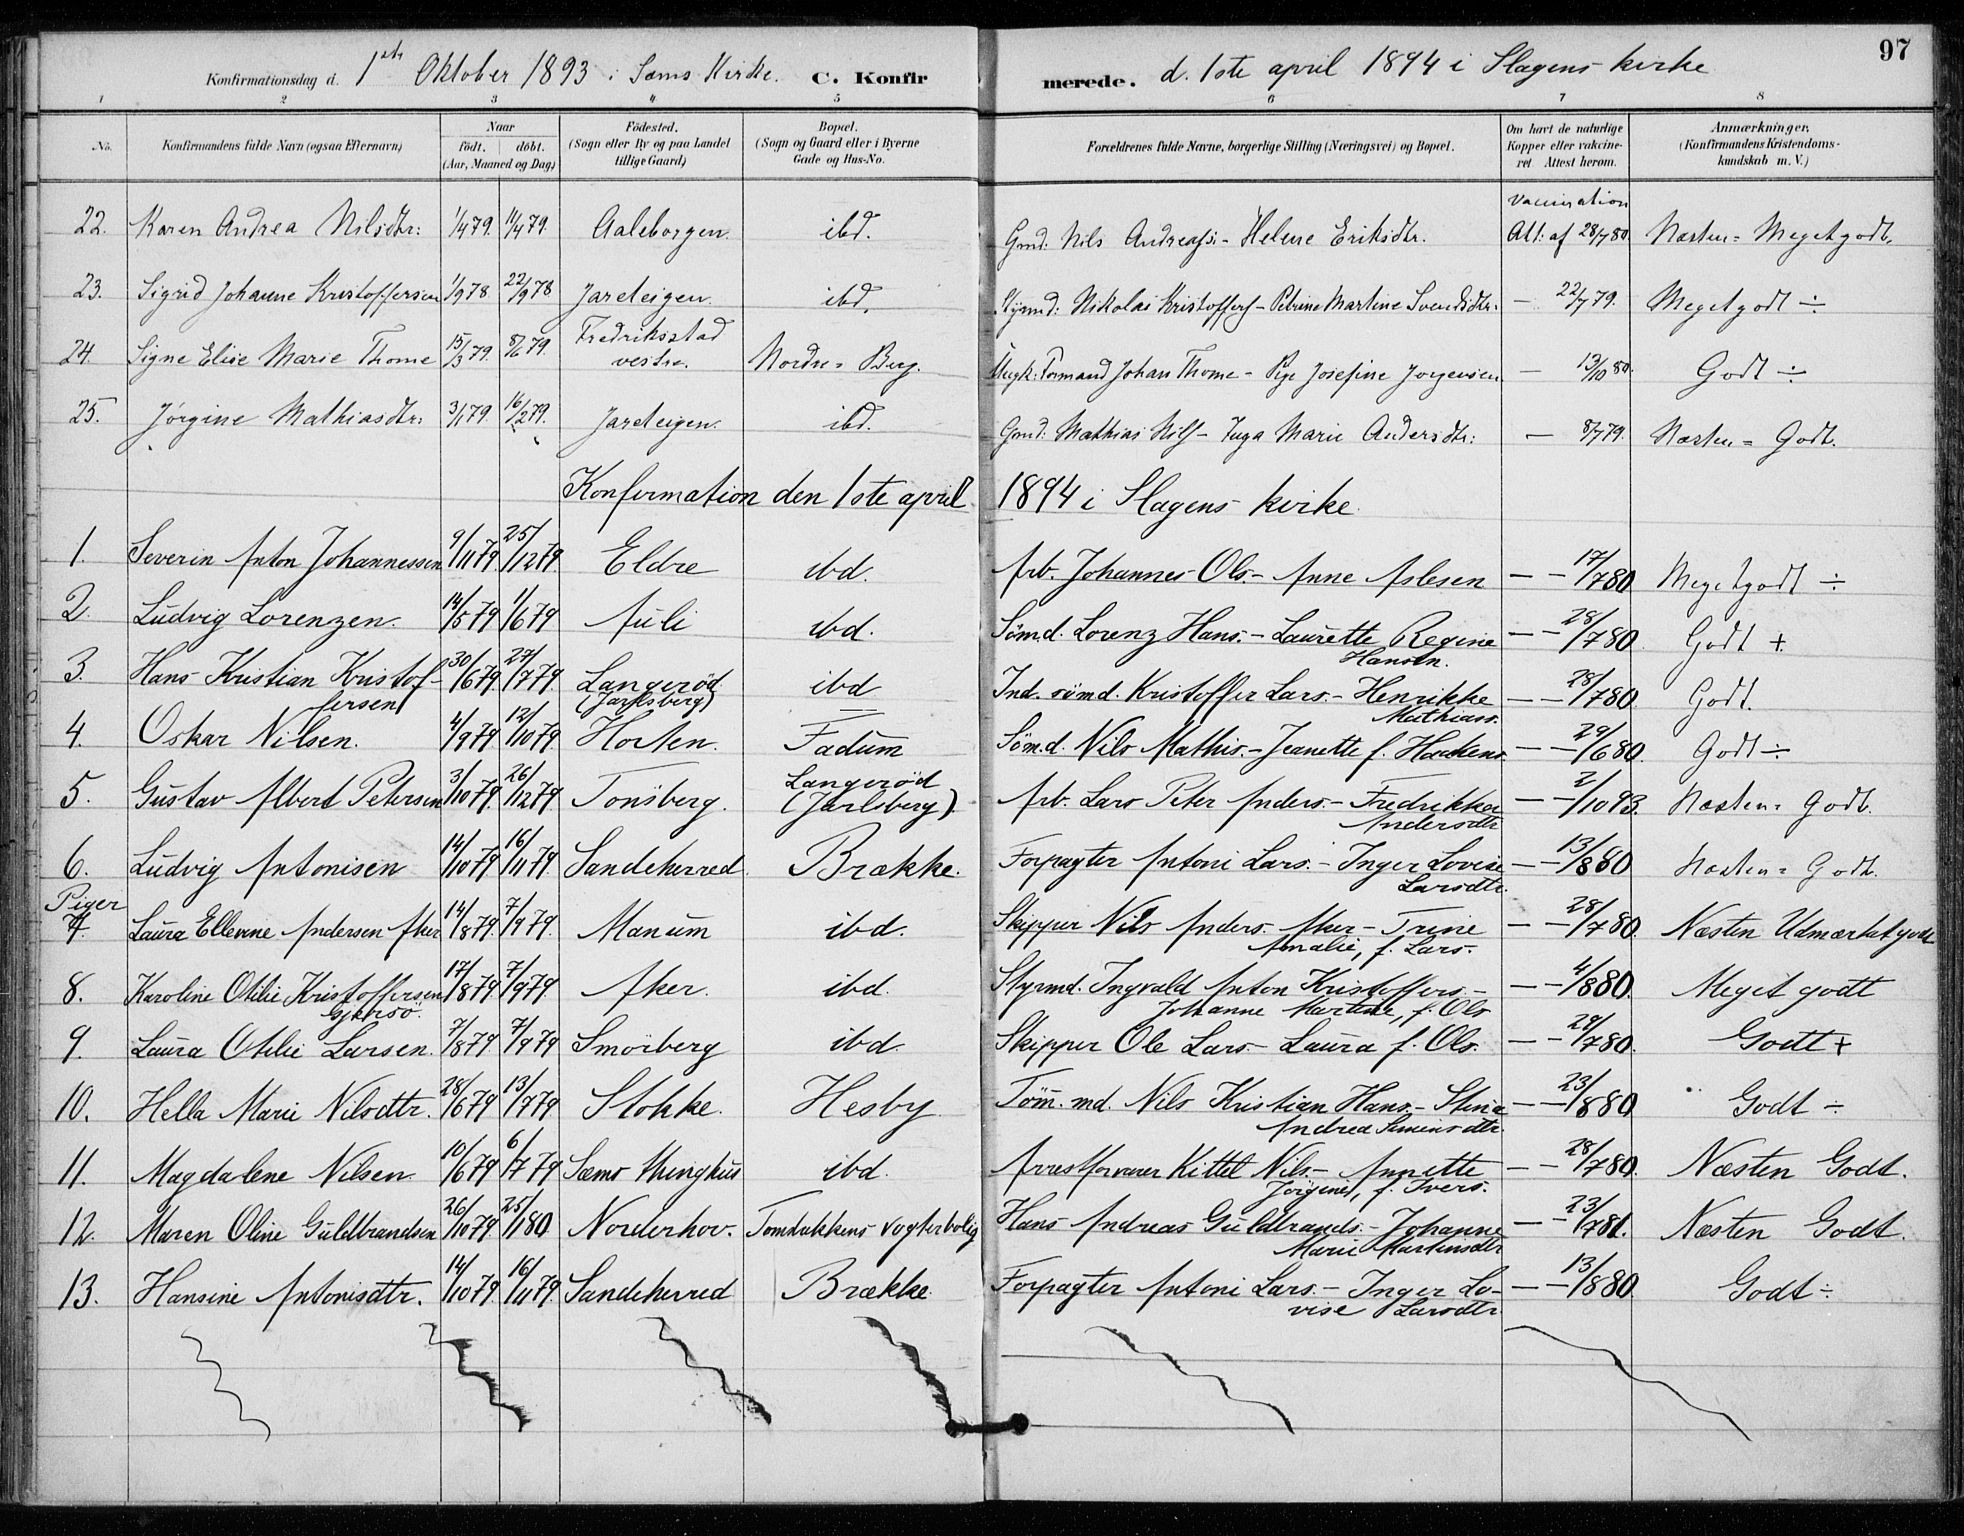 97
Konfirmationsdag d. 1ste Oktober 1893 i Sems Kirke. C. Konfirmerede. d. 1ste april 1894 i Slagens kirke
1 2 3 4 5 6 7 8
No. Konfirmandens fulde Navn (ogsaa Efternavn) Naar födt. döbt. (Aar, Maaned og Dag) Födested. (Sogn eller By og paa Landet tillige Gaard) Bopæl. (Sogn og Gaard eller i Byerne Gade og Hus-No. Forældrenes fulde Navne, borgerlige Stilling (Næringsvei) og Bopæl. Om havt de naturlige Kopper eller vakcineret. Attest herom. Anmærkninger. (Konfirmandens Kristendomskundskab m. V.)
Vaccination
22. Karen Andrea Nilsdtr: 1/4 79. 14/4 79. Aaleborgen. ibd. Gmd: Nils Andreass: - Helene Eriksdtr. Att: af 28/7 80 Næsten = Meget godt.
23. Sigrid Johanne Kristoffersen 1/9 78. 22/9 78 Jareteigen. ibd. Nikolai Kristoffers - Petrine Martine Svendsdtr. — 22/7 79. Meget godt ÷
24. Signe Elise Marie Thome 15/3 79. 8/6 79. Fredriksstad vestre. Nordre = Berg. Ungk: Formand Johan Thome - Pige Josefine Jorgensen — 13/10 80. Godt ÷
25. Jörgine Mathiasdtr: 3/1 79. 16/2 79. Jareteigen. ibd. Gmd: Mathias Nils - Inga Marie Andersdtr: — 8/7 79. Næsten = Godt.
Konfirmation den 1ste april 1894 i Slagens kirke.
1. Severin Anton Johannessen 9/11 79. 25/12 79 Eldre ibd. Arb. Johannes Ols. - Anne Aslesen — — 17/7 80 Meget godt ÷
2. Ludvig Lorenzen. 14/5 79 1/6 79 Auli ibd. Sömd. Lorenz Hans. - Laurette Regine Hansen. — — 28/7 80 Godt +
3. Hans Kristian Kristoffersen 30/6 79 27/7 79. Langeröd (Jarlsberg) ibd Ind. sömd. Kristoffer Lars. - Henrikke Mathiass. — — 28/7 80 Godt.
4. Oskar Nilsen. 4/9 79 12/10 79 Horten. Fadum Sömd. Nils Mathis. - Jeanette f. Haakens — — 29/6 80 Godt ÷
5. Gustav Albert Petersen 3/10 79. 26/12 79. Tönsberg. Langeröd (Jarlsberg). Arb. Lars Peter Anders. - Fredrikka Andersdtr — — 2/10 93. Næsten = Godt.
6. Ludvig Antonisen 14/10 79 16/11 79 Sandeherred. Brække. Forpagter Antoni Lars. - Inger Lovise Larsdtr. — — 13/8 80 Næsten = Godt.
Piger
7. Laura Ellevine Andersen Aker 14/8 79. 7/9 79. Manum ibd. Skipper Nils Anders. Aker - Trine Amalie, f. Lars. — — 28/7 80. Næsten Udmærket godt
8. Karoline Otilie Kristoffersen Gjersö. 17/8 79. 7/9 79. Aker. ibd. Styrmd. Ingvald Anton Kristoffers. - Johanne Martine, f. Ols — — 4/8 80. Meget godt
9. Laura Otilie Larsen. 7/8 79 7/9 79 Smörberg ibd. Skipper Ole Lars. - Laura f. Ols. — — 29/7 80. Godt +
10. Hella Marie Nilsdtr. 28/6 79 13/7 79 Stokke. Hesby Töm. md. Nils Kristian Hans. - Stina Andrea Simensdtr. — — 23/8 80 Godt ÷
11. Magdalene Nilsen. 10/6 79 6/7 79 Sems thinghus ibd. Arrestforvarer Kittel Nils. - Annette Jörgine, f. Ivers. — — 28/7 80. Næsten Godt.
12. Maren Oline Guldbrandsen 26/10 79. 25/1 80 Norderhov. Tombakkens vogterbolig Hans Andreas Guldbrands. - Johanne Marie Martinsdtr — — 23/7 81. Næsten Godt.
13. Hansine Antonisdtr. 14/10 79. 16/11 79. Sandeherred Brække. Forpagter Antoni Lars. - Inger Lovise Larsdtr. — — 13/8 80 Godt ÷